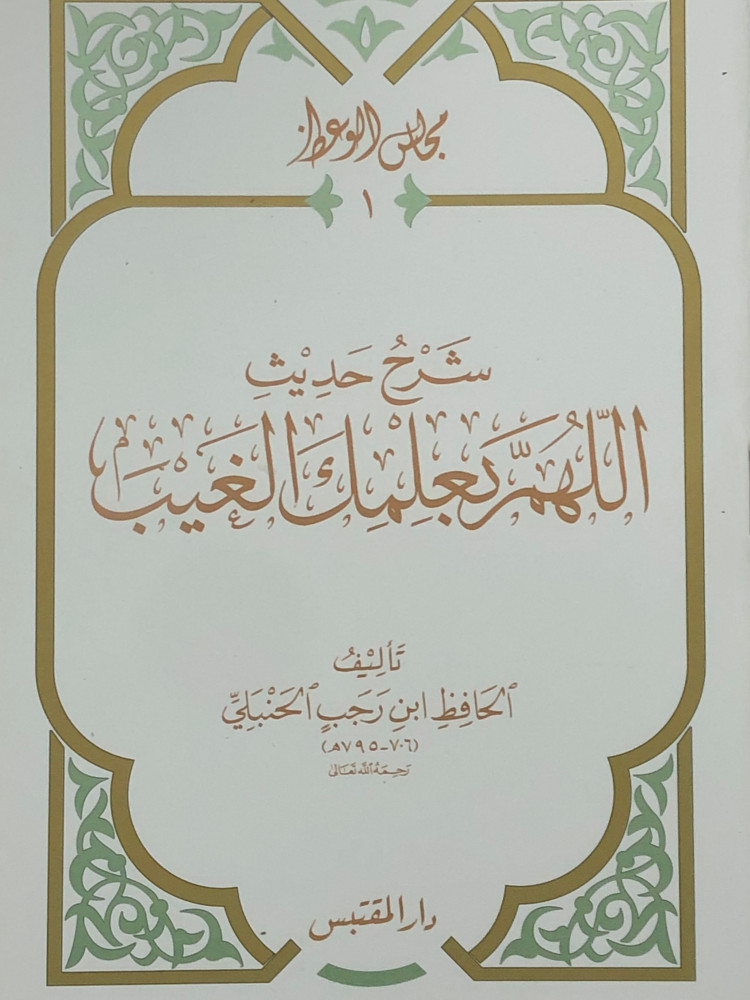 مجالس الوعظ
١
شَرْحُ حَدِيْثِ
اللّٰهُمَّ بِعِلْمِكَ الْغَيْبَ
تَأْلِيْفُ
ٱلْحَافِظِ ابْنِ رَجَبٍ ٱلْحَنْبَلِيِّ
(٧٠٦-٧٩٥هـ)
رَحِمَهُ اللهُ تَعَالىٰ
دار المقتبس